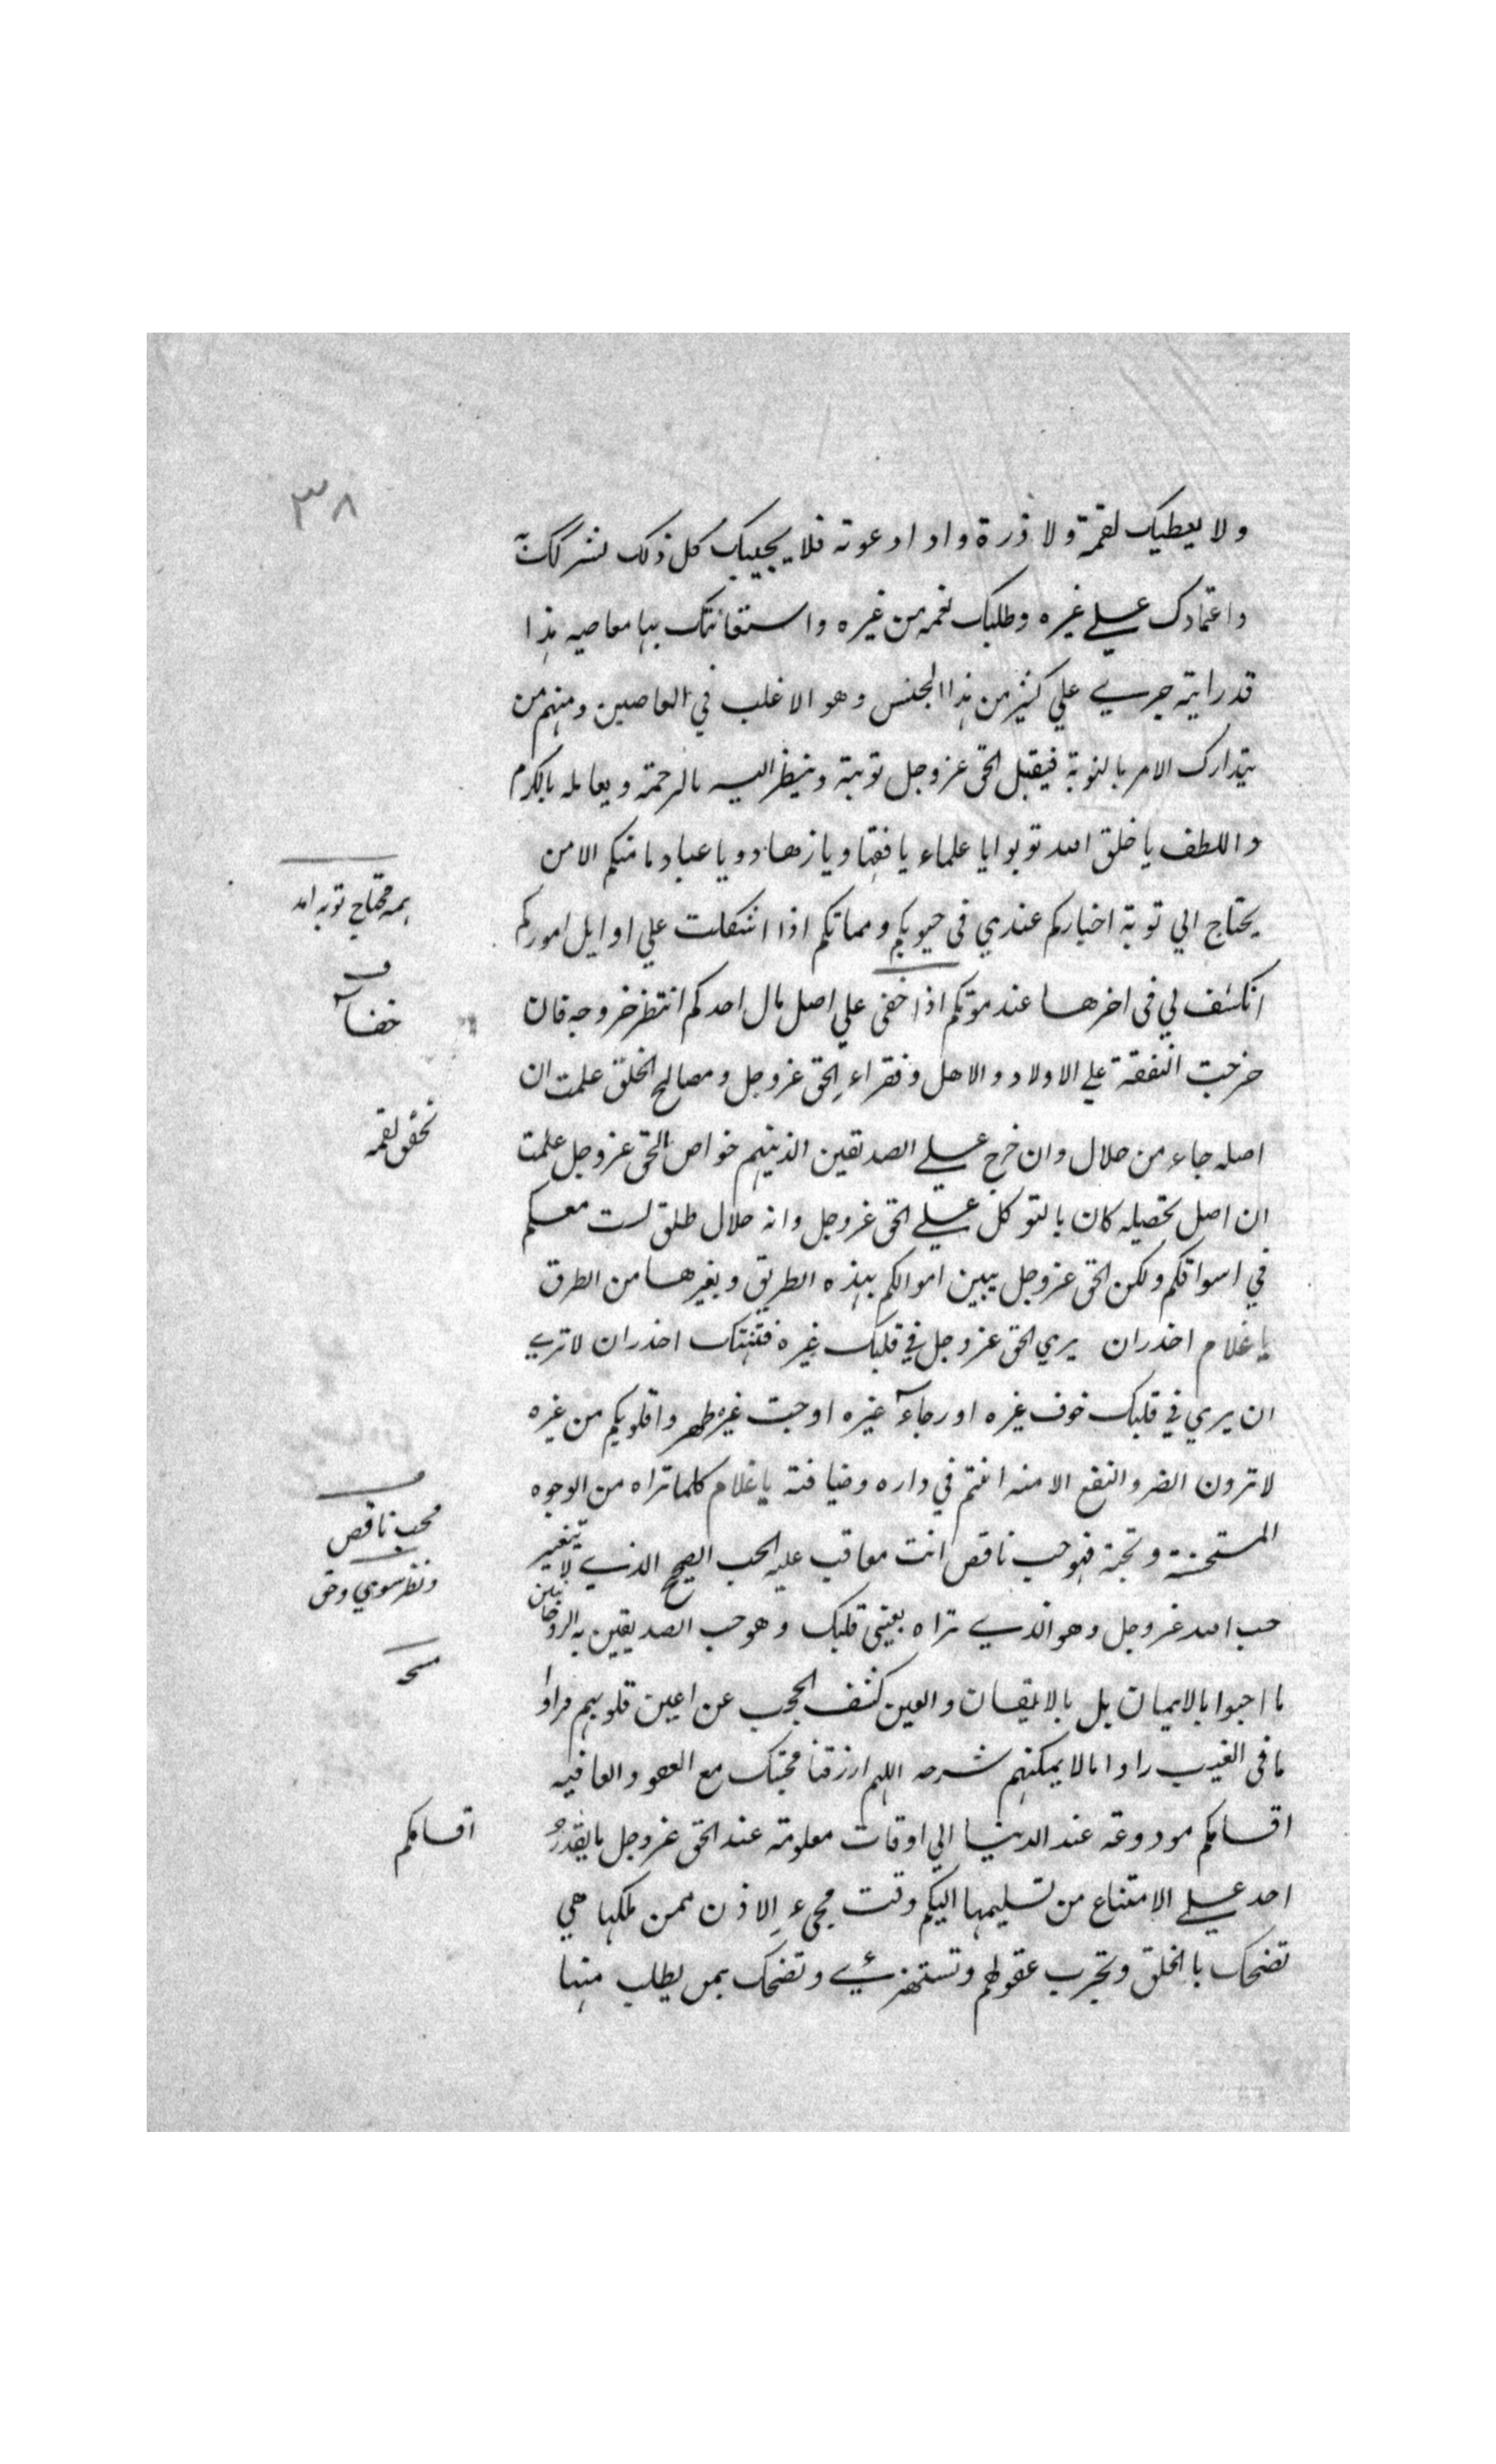 ٣٨
ولا يعطيك لقمة ولا ذرة واذا دعوته فلا يجيبك كل ذلك لشركك
واعتمادك علي غيره وطلبك نعمه من غيره واستعانتك بها معاصيه هذا
قد رايته جري علي كثير من هذا الجنس وهو الاغلب في العاصين ومنهم من
يتدارك الامر بالتوبة فيقبل الحق عز وجل توبته وينظر اليه بالرحمة ويعامله بالكرم
واللطف يا خلق الله توبوا يا علماء يا فقها ويا زهاد ويا عباد ما منكم الا من
يحتاج الي توبة اخباركم عندي في حيوتكم ومماتكم اذا اشكلت علي اوايل اموركم
همه محتاج توبه اند
انكشف لي في اخرها عند موتكم اذا خفي علي اصل مال احدكم انتظر خروجه فان
خرجت النفقة علي الاولاد والاهل وفقراء الحق عز وجل ومصالح الخلق علمت ان
اصله جاء من حلال وان خرج علي الصديقين الذينهم خواص الحق عز وجل علمت
تحقق لقمه
ان اصل تحصيله كان بالتوكل علي الحق عز وجل وانه حلال طلق لست معكم
في اسواقكم ولكن الحق عز وجل يبين اموالكم بهذه الطريق وبغيرها من الطرق
يا غلام احذر ان يري الحق عز وجل في قلبك غيره فتنهتك احذر ان لا تري
ان يري في قلبك خوف غيره او رجاء غيره او حب غيره طهروا قلوبكم من غيره
لا ترون الضر والنفع الا منه انتم في داره وضيافته يا غلام كلما تراه من الوجوه
المستحسنة وتحبه فهو حب ناقص انت معاقب عليه الحب الصحيح الذي لا يتغير
محب ناقص
حب الله عز وجل وهو الذي تراه بعيني قلبك وهو حب الصديقين الروحانيين
ما احبوا بالايمان بل بالايقان والعين كشف الحجب عن اعين قلوبهم فراوا
ما في الغيب راوا ما لا يمكنهم شرحه اللهم ارزقنا محبتك مع العفو والعافيه
اقسامكم مودوعه عند الدنيا الي اوقات معلومة عند الحق عز وجل ما يقدر
اقسامكم
احد علي الامتناع من تسليمها اليكم وقت مجيء الاذن ممن ملكها هي
تضحك بالخلق وتجرب عقولهم وتستهزئ وتضحك بمن يطلب منها